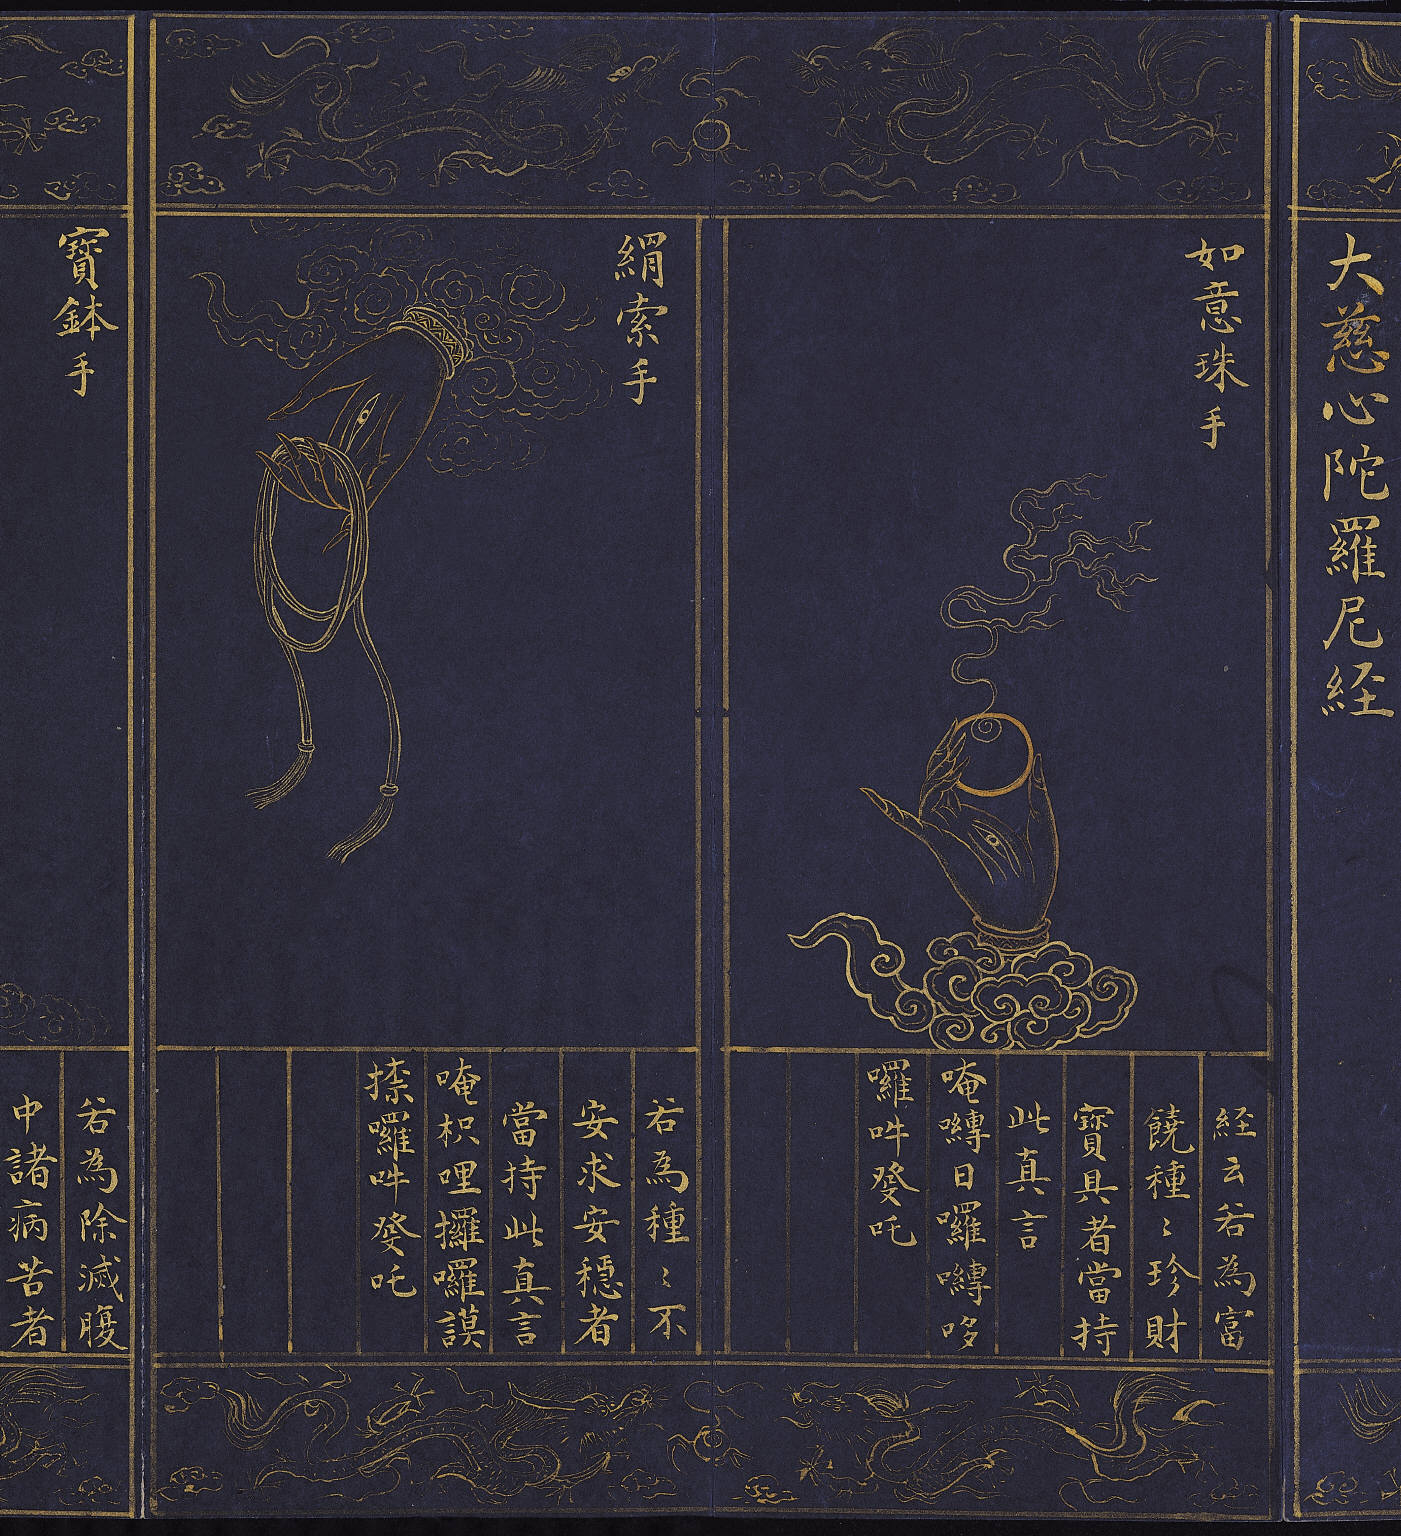 大慈心陀羅尼経
如意珠手
経云若為富
饒種〻珍財
寳具者當持
此真言
唵嚩日囉嚩哆
囉吽發吒
羂索手
若為種〻不
安求安穩者
當持此真言
唵枳哩攞囉謨
捺囉吽發吒
寳鉢手
若為除滅腹
中諸病苦者